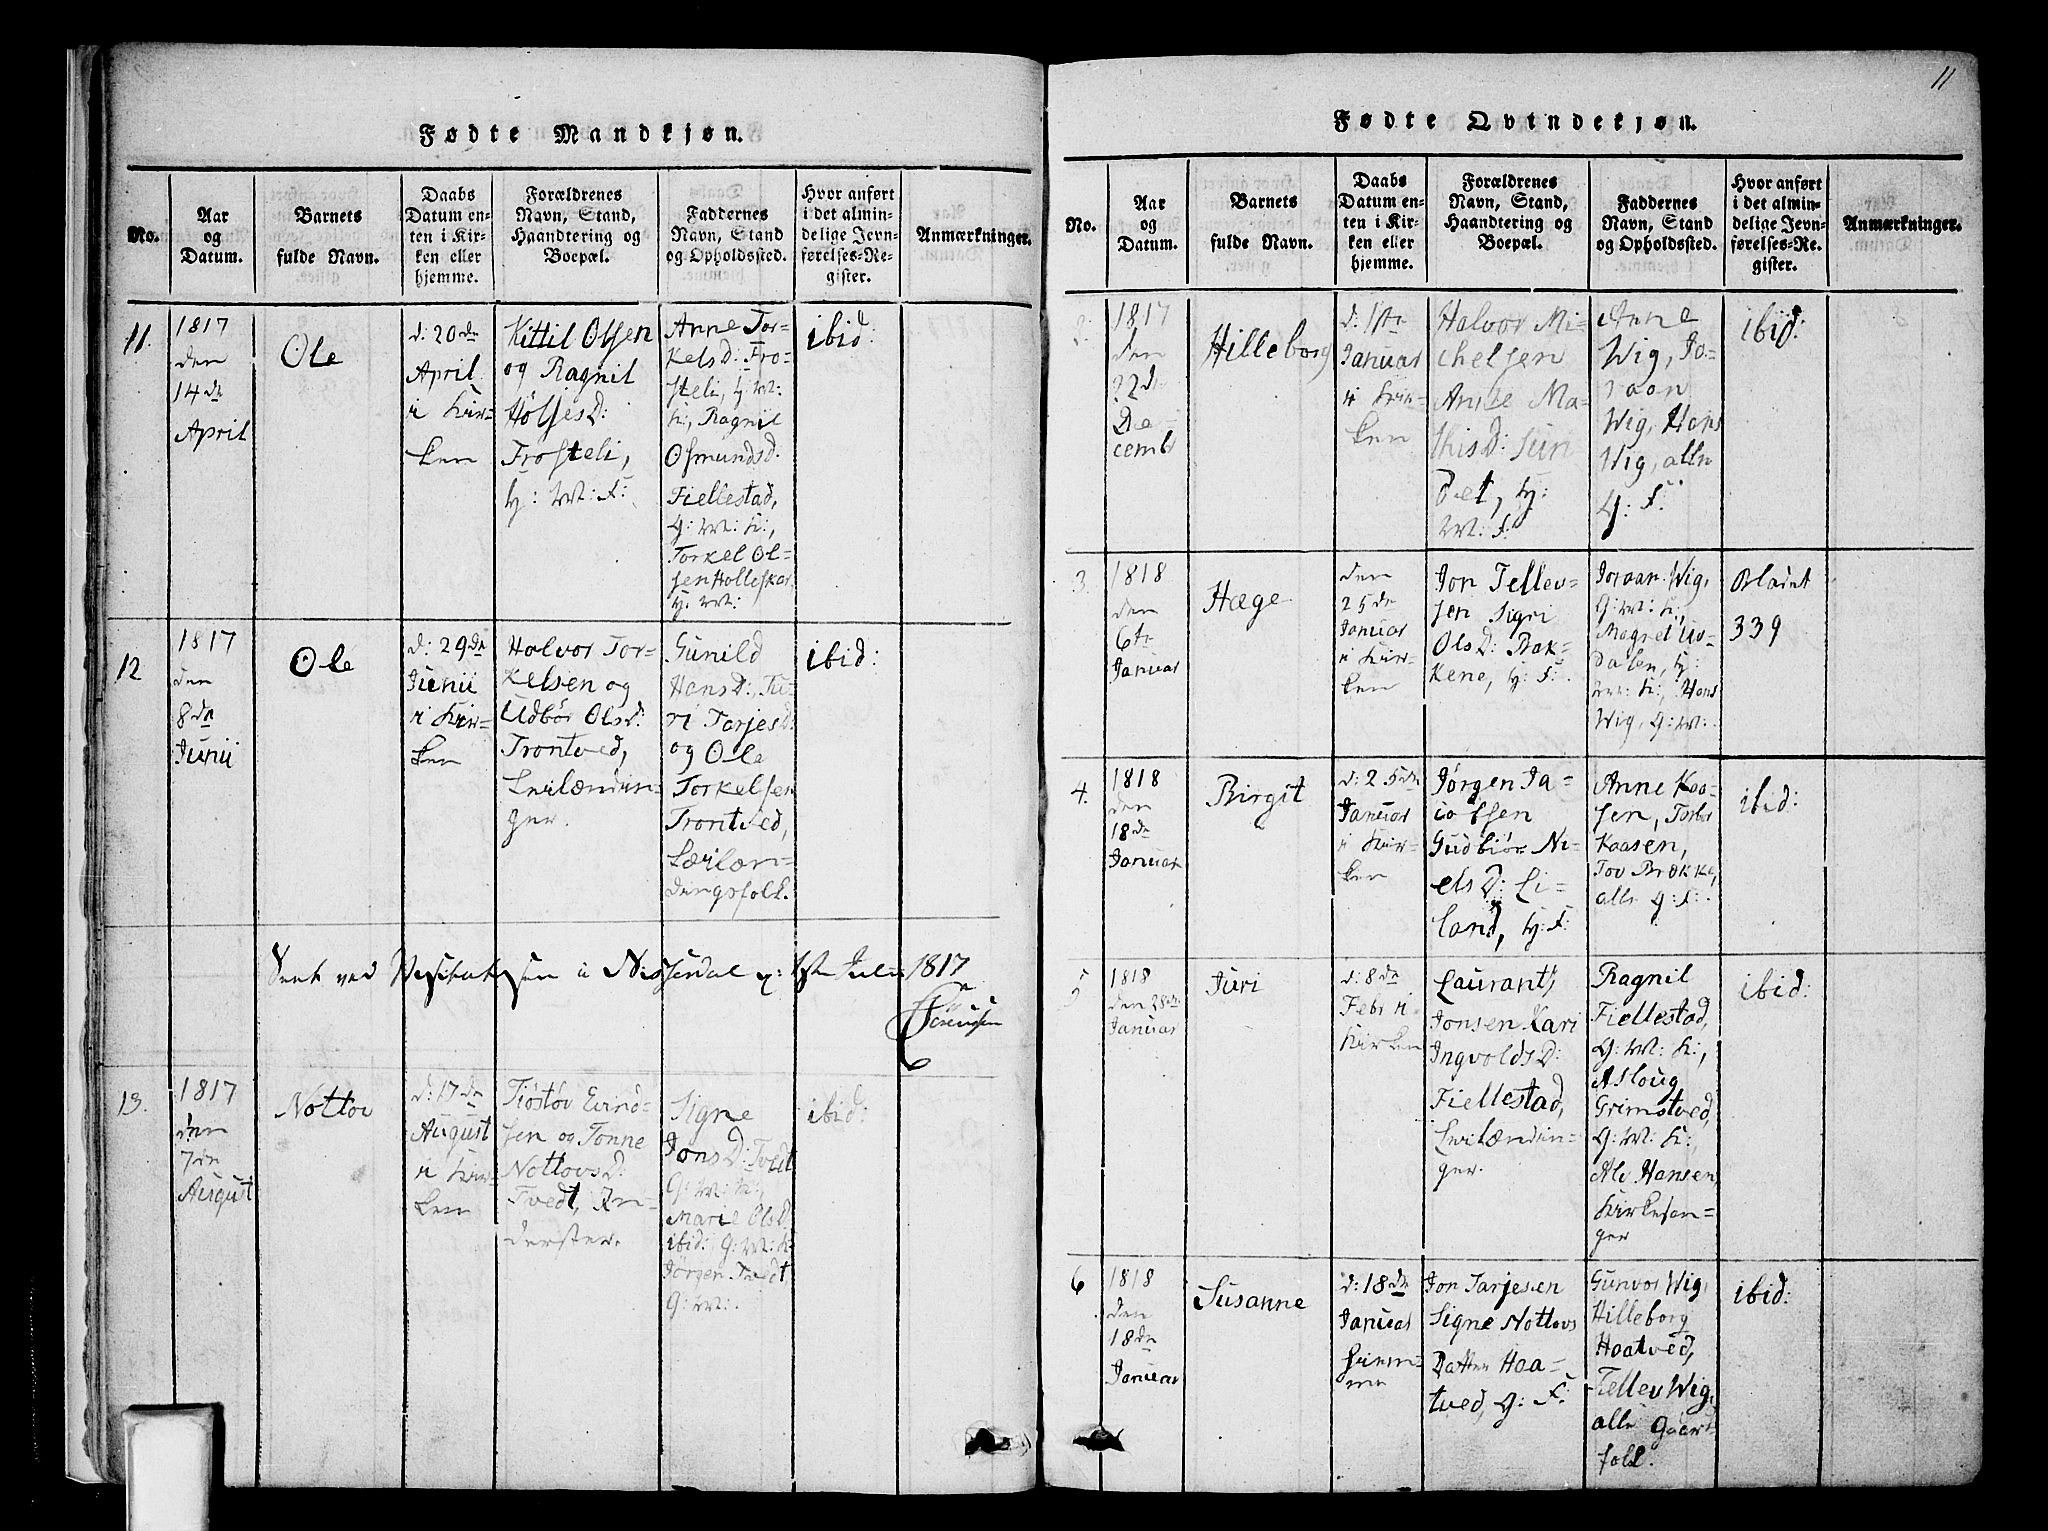 11
Fødte Mandkjøn.
No.
Aar
og
Datum.
Barnets
fulde Navn.
Daabs
Datum en-
ten i Kir-
ken eller
hjemme.
Forældrenes
Navn, Stand,
Haandtering og
Boepæl.
Faddernes
Navn, Stand
og Opholdssted.
Hvor anført
i det almin-
delige Jevn-
førelses-Re-
gister.
Anmærkninger.
11.
1817
den
14de
April
Ole
d: 20de
April
i Kir-
ken
Kittil Olsen
og Ragnil
HöljesD:
Frosteli,
H: M: F:
Anne Tor-
kelsd: Fro-
steli, H: M:
K:, Ragnil
Osmundsd.
Fiellestad,
G: M: K:,
Torkel Ol-
sen Holleskar
H: M:
ibid:
12
1817
den
8de
Junii
Ole
d: 29de
Junii
i Kir-
ken
Halvor Tor-
kelsen og
Udbör Olsd:
Trontved,
Leilændin-
ger.
Gunild
HansD:, Tu-
ri TarjesD:
og Ole
Torkelsen
Trontved,
Leilæn-
dingsfolk.
ibid:
Seet ved Visitatsen i Nissedal d: 1ste Julii 1817
Sörensen
13.
1817
den
7de
August
Nottov
d: 17de
August
i Kir-
ken
Tiöstöv Eivind-
sen og Tonne
NottovsD:
Tvedt, In-
derster.
Signe
JonsD: Tvedt
G: M: K:,
Marie OlsD:
ibid: G: M: K:
Jörgen Tvedt
G: M:.
ibid:
Fødte Qvindekjøn.
No.
Aar
og
Datum.
Barnets
fulde Navn.
Daabs
Datum en-
ten i Kir-
ken eller
hjemme.
Forældrenes
Navn, Stand,
Haandtering og
Boepæl.
Faddernes
Navn, Stand
og Opholdssted.
Hvor anført
i det almin-
delige Jevn-
førelses-Re-
gister.
Anmærkninger.
2:
1817
den
22de
De
cembr
Hilleborg
d: 1ste
Januar
i Kir-
ken
Halvor Mi-
chelsen
Anne Ma-
thisD:
det, H:
M: F:
Anne
Wig, Jo-
raan
Wig, Hans
Wig, alle
G: F:
ibid:
3.
1818
den
6te
Januar
Hæge
den
25de
Januar
i Kir-
ken
Jon Tellev-
sen Sigri
OlsD: Bak-
kene, H: F:
Joraan Wig,
G: M: K:,
Magnel Uv-
dalen, H:
M: K:, Hans
Wig, G: M:.
Bladet
339
4.
1818
den
18de
Januar
Birgit
d: 25de
Januar
i Kir-
ken
Jörgen Ja-
cobsen
Gudbiör Ni-
elsD: Li-
land, H: F:
Anne Kaa-
sen, Torbr
Kaasen,
Tov Brække,
alle G: F:.
ibid:
5
1818
den 28de
Januar
Turi
d: 8de
Febr i
Kirken
Laurants
Jonsen Kari
IngvoldsD:
Fiellestad,
Leilændin-
ger.
Ragnil
Fiellestad,
G: M: K:,
Asloug
Grimstved,
G: M: K:,
Alv Hansen,
Kirkesan-
ger
ibid:
6
1818
den
18de
Januar
Susanne
d: 18de
Januar
hiem-
me
Jon Tarjesen
Signe Nottovs
Datter Haa-
tved, G: F:
Gunvor Wig,
Hilleborg
Haatved,
Tellev Wig,
alle Gaard-
folk.
ibid: